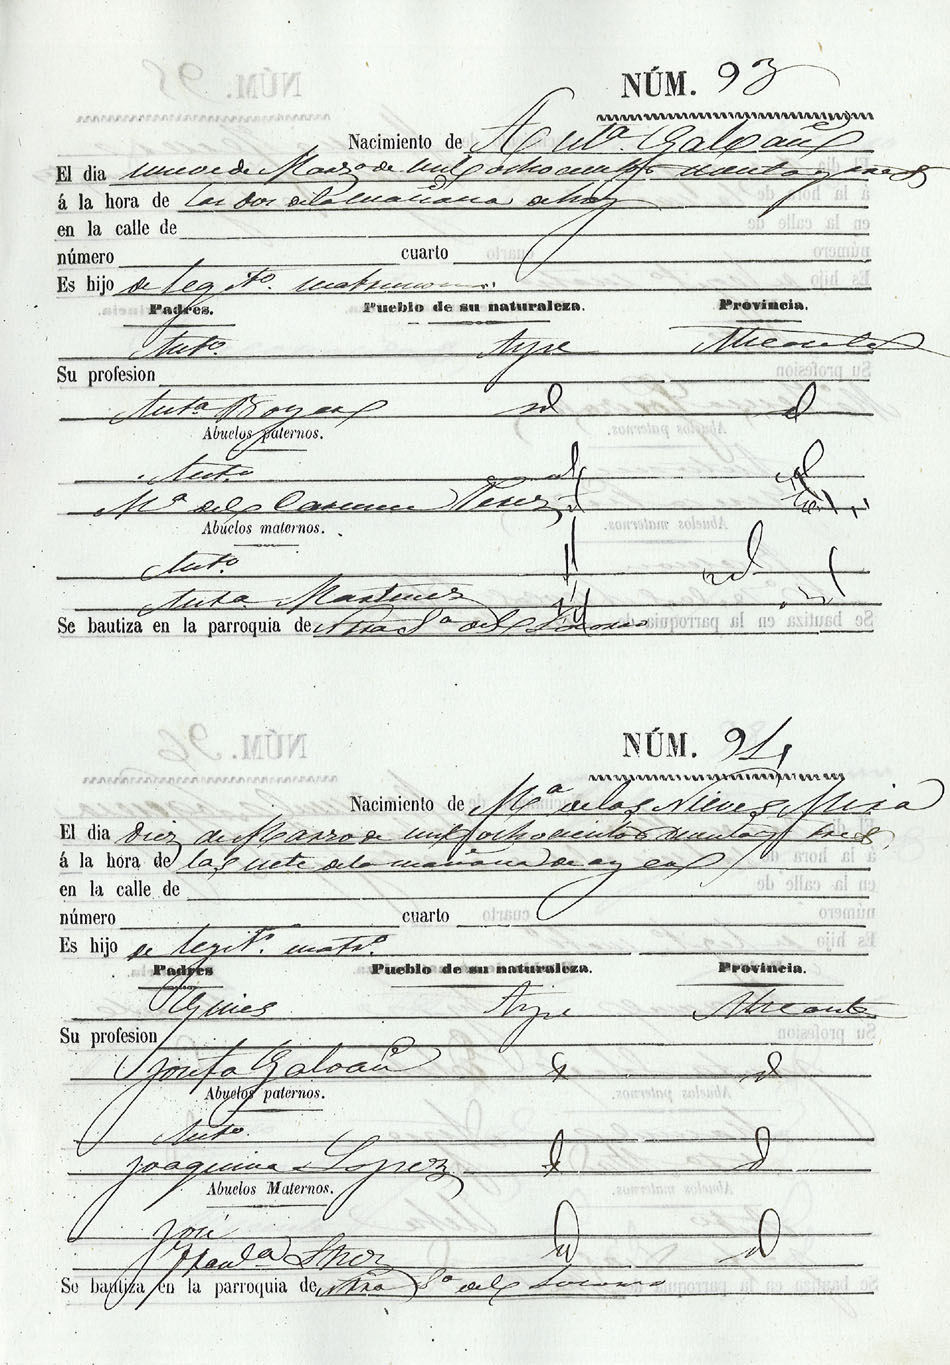 NÚM. 93
Nacimiento de Anta. Galvañ
El dia nueve de Marzo de mil ochocientos noventa y tres
á la hora de las dos de la mañana de hoy
en la calle de
número cuarto
Es hijo de legto. matrimonio.
Padres. Pueblo de su naturaleza. Provincia.
Anto. Aspe Alicante
Su profesion
Anta id id
Abuelos paternos.
Anto. id id
Ma. del Carmen Perez id
Abuelos maternos.
Anto. id
Anta. Martinez id
Se bautiza en la parroquia de Ntra Sa del Socorro
NÚM. 94
Nacimiento de Ma. de las Nieves Mira
El dia diez de Marzo de mil ochocientos noventa y tres
á la hora de las siete de la mañana de ayer
en la calle de
número cuarto
Es hijo de legito. matro.
Padres Pueblo de su naturaleza. Provincia.
Gines Aspe Alicante
Su profesion
Josefa Galvañ id id
Abuelos paternos.
Anto.
Joaquina Lopez id id
Abuelos Maternos.
José
id id
Se bautiza en la parroquia de Ntra Sa del Socorro